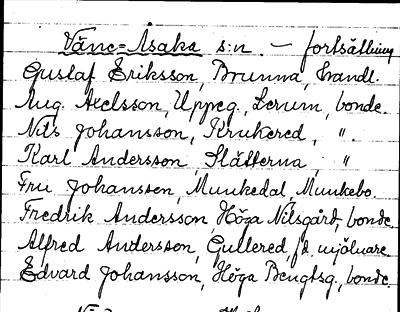 Väne-Åsaka s:n. — fortsättning
Gustaf Eriksson, Brunna, handl.
Aug. Axelsson, Uppeg., Lerum, bonde.
Nils Johansson, Krukered, ".
Karl Andersson, Slätterna, "
Fru Johansson, Munkedal, Munkebo.
Fredrik Andersson, Höga Nilsgård, bonde.
Alfred Andersson, Gullered, f.d. mjölnare
Edvard Johansson, Höga Bengtsg., bonde.